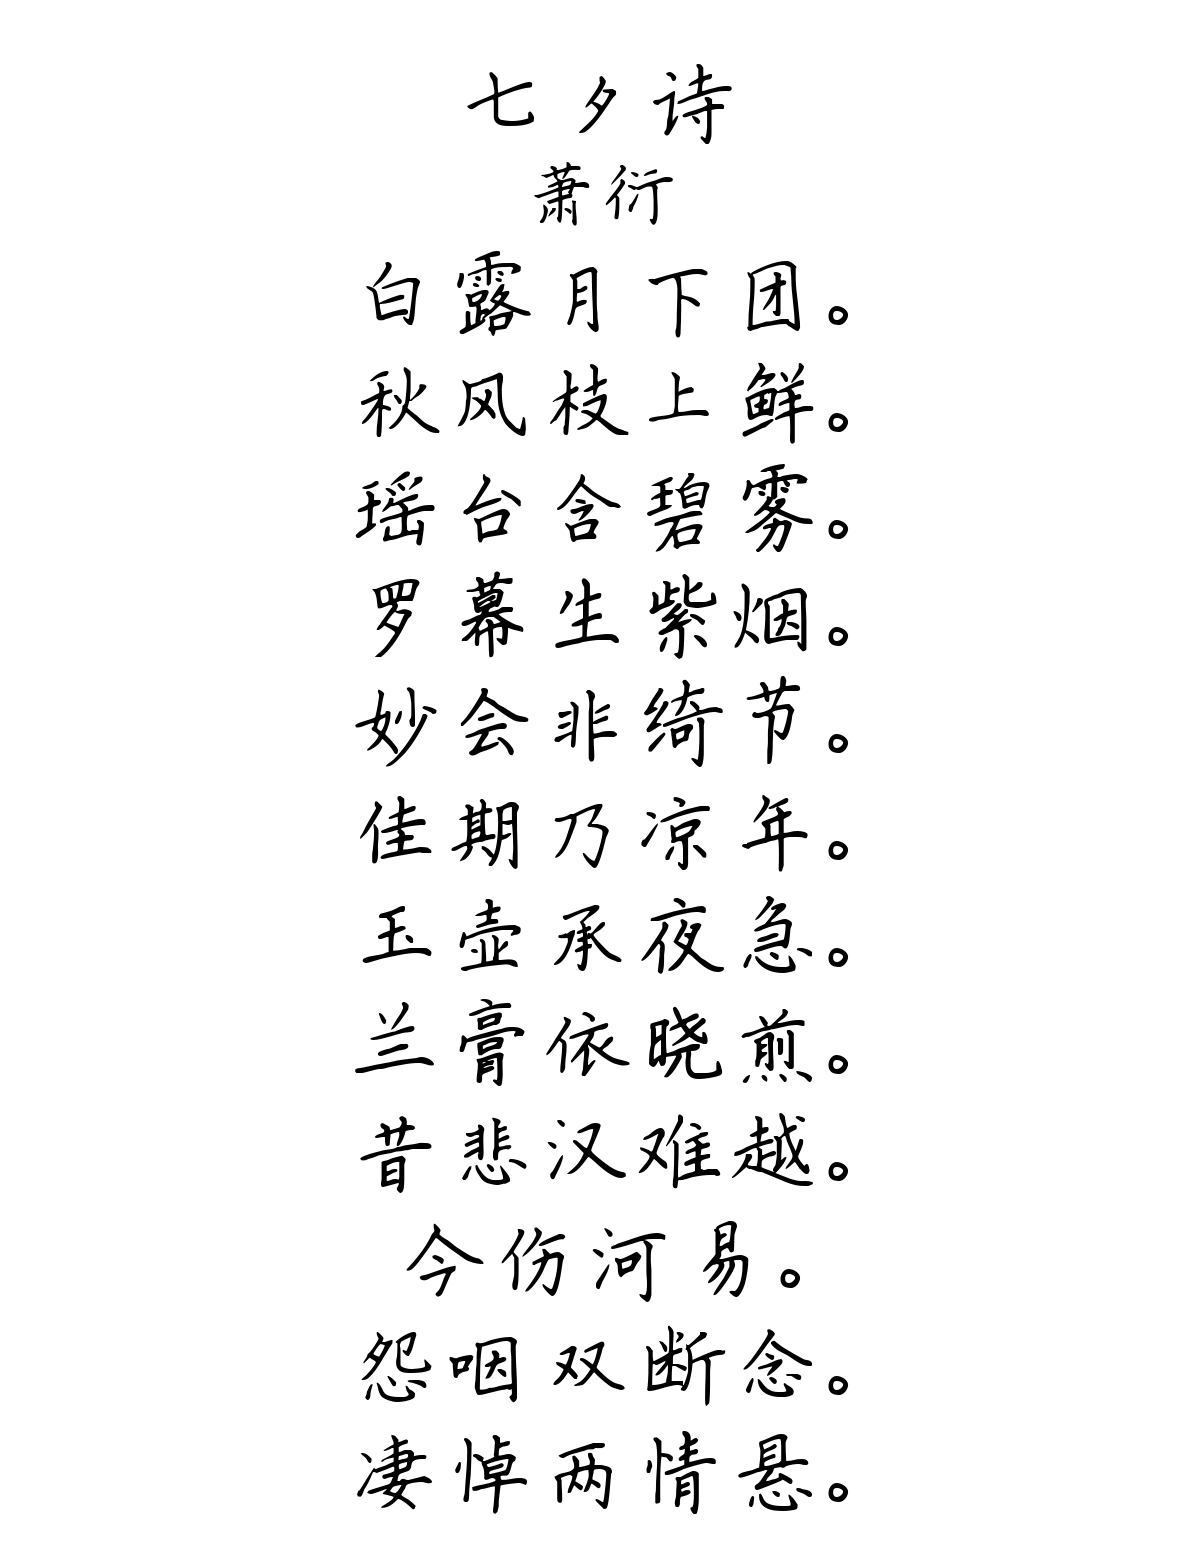 七夕诗
萧衍
白露月下团。
秋风枝上鲜。
瑶台含碧雾。
罗幕生紫烟。
妙会非绮节。
佳期乃凉年。
玉壶承夜急。
兰膏依晓煎。
昔悲汉难越。
今伤河易。
怨咽双断念。
凄悼两情悬。